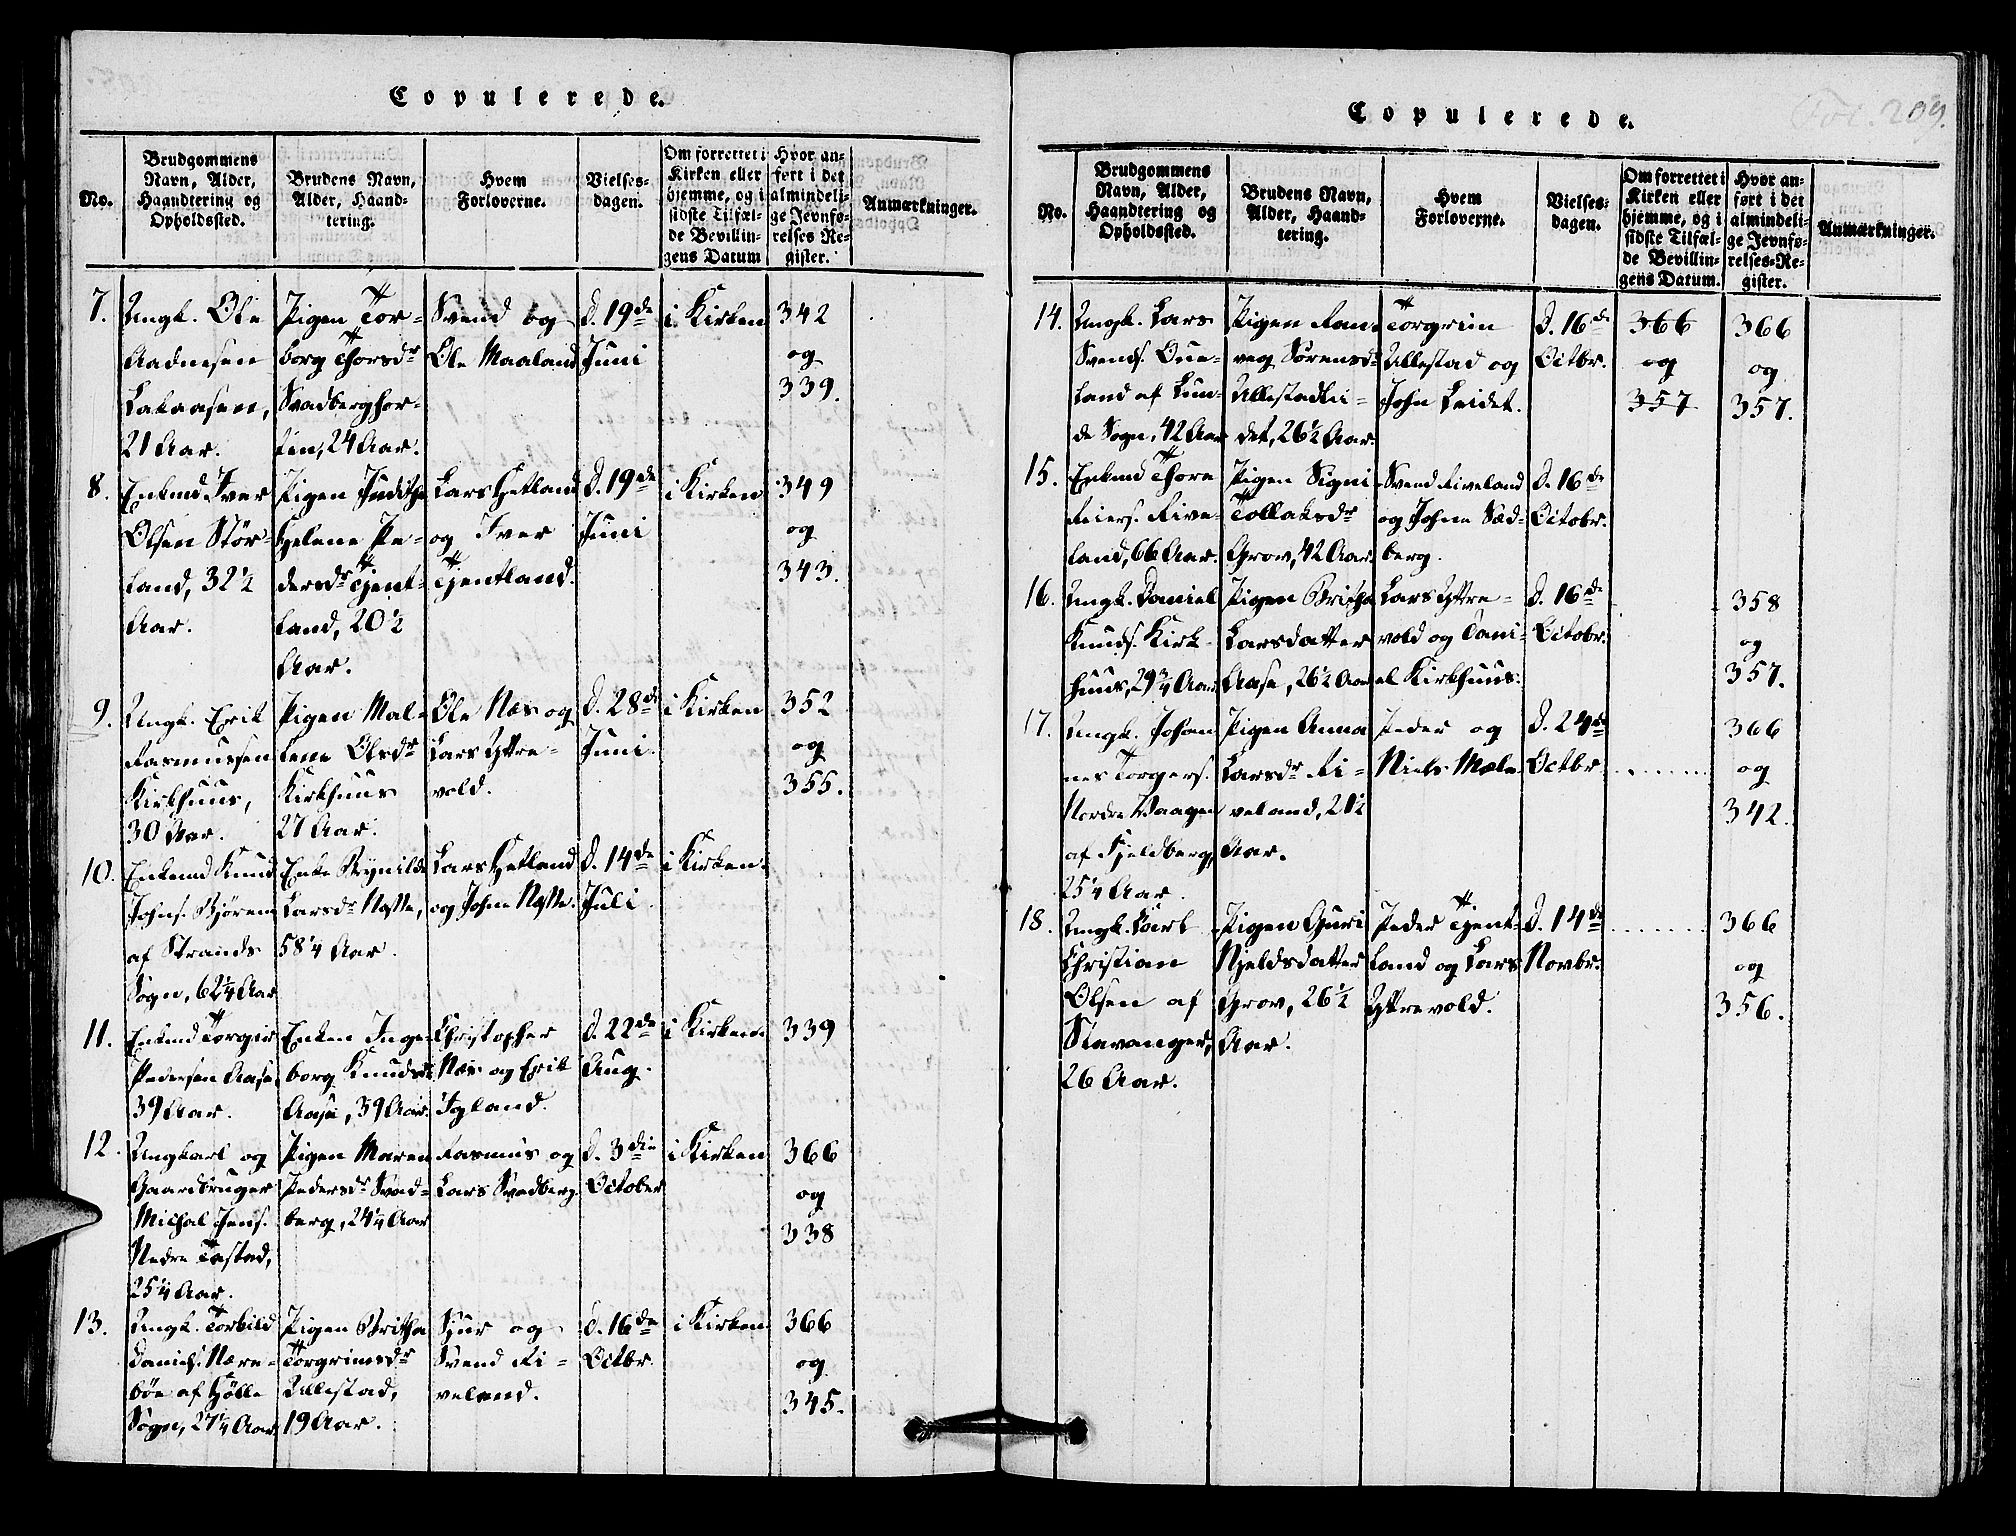 Copulerede.
No.
Brudgommens
Navn, Alder,
Haandtering og
Opholdssted.
Brudens Navn,
Alder, Haand-
tering.
Hvem
Forloverne.
Vielses-
dagen.
Om forrettet i
Kirken eller
hjemme, og i
sidste Tilfæl-
de Bevillin-
gens Datum
Hvor an-
ført i det
almindeli-
ge Jevnfø-
relses Re-
gister.
Anmærkninger.
7.
Ungk. Ole
Aadnesen
21 Aar.
Pigen Tor-
borg Thorsdr
Svadberghor-
ten, 24 Aar.
Svend og
Ole Maaland
D. 19de
Juni
i Kirken
342
og
339.
8.
Enkmd Iver
Olsen Stør-
land, 32 1/2
Aar.
Pigen Judithe
Helene Pe-
dersdr Tjent-
land, 20 1/2
Aar.
Lars Hetland
og Iver
Tjentland.
D. 19de
Juni
i Kirken
349
og
343.
9.
Ungk. Erik
Rasmussen
Kirkhuus,
30 Aar.
Pigen Mal-
lene Olsdr
Kirkhuus
27 Aar.
Ole Næs og
Lars Yttre-
vold.
D. 28de
Juni.
i Kirken
352
og
355.
10.
Enkemd Knud
Johns. Bjørem
af Strands
Sogn, 62 1/4 Aar
Enke Brynilde
Larsdr
58 1/4 Aar.
Lars Hetland
og Johne
D. 14de
Juli.
i Kirken.
11.
Enkmd Torgir
Pedersen Aase,
39 Aar.
Enken Inge-
borg Knudsdr
Aase, 39 Aar.
Christopher
Næs og Erik
Igland.
D. 22de
Aug.
i Kirken.
339
12.
Ungkarl og
Gaardbruger
Michal Jens.
Nedre Tastad,
25 1/4 Aar.
Pigen Maren
Pedersdr Svad-
berg, 24 1/4 Aar
Rasmus og
Lars Svadberg.
D. 3die
October
i Kirken
366
og
338
13.
Ungk. Torkild
Daniels. Nære-
bøe af Hølle
Sogn, 27 1/4 Aar
Pigen Britha
Torgrimsdr
Ullestad,
19 Aar.
Sjur og
Svend Ri-
veland.
d. 16de
Octbr.
i Kirken
366
og
345.
Copulerede.
Fol. 209.
No.
Brudgommens
Navn, Alder,
Haandtering og
Opholdssted.
Brudens Navn,
Alder, Haand-
tering.
Hvem
Forloverne.
Vielses-
dagen.
Om forrettet i
Kirken eller
hjemme, og i
sidste Tilfæl-
de Bevillin-
gens Datum.
Hvor an-
ført i det
almindeli-
ge Jevnfø-
relses-Re-
gister.
Anmærkninger.
14.
Ungk. Lars
Svends. Oue-
land af Lun-
de Sogn, 42 Aar
Pigen Ran-
veg Sørensdr
Ullestadlei-
det, 26 1/2 Aar.
Torgrim
Ullestad og
John Leidet.
D. 16de
Octbr.
366
og
357
366
og
357.
15.
Enkmd Thore
Reiers. Rive-
land, 66 Aar.
Pigen Signi
Tollaksdr
Grov, 42 Aar.
Svend Riveland
og Johne Sæd-
berg.
D. 16de
Octobr.
16.
Ungk. Daniel
Knuds. Kirk-
huus, 29 3/4 Aar
Pigen Britha
Larsdatter
Aase, 26 1/2 Aar
Lars Yttre-
vold og Dani-
el Kirkhuus.
D. 16de
Octobr.
358
og
357.
17.
Ungk. Johan-
nes Torgers.
Nordre Vaagen
af Fjeldberg,
25 1/4 Aar.
Pigen Anna
Larsdr Ri-
veland, 21 1/2
Aar.
Peder og
Niels Mæle
D. 24de
Octbr
366
og
342.
18.
Ungk. Carl
Christian
Olsen af
Stavanger,
26 Aar.
Pigen Guri
Njeldsdatter
Grov, 26 1/2
Aar.
Peder Tjent-
land og Lars
Yttrevold.
D. 14de
Novbr.
366
og
356.